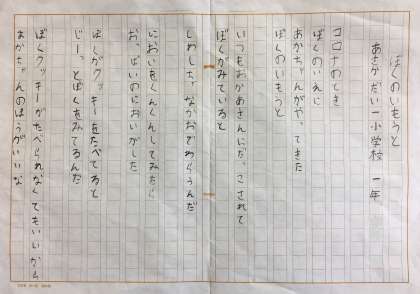 ぼくのいもうと
あさかだい一小学校 一年
コロナのとき
ぼくのいえに
あかちゃんがやってきた
ぼくのいもうと
いつもおかあさんにだっこされて
ぼくがみていると
しわしわなかおでわらうんだ
においをくんくんしてみたら
おっぱいのにおいがした
ぼくがクッキーをたべてると
じーっとぼくをみてるんだ
ぼくクッキーがたべられなくてもいいから
あかちゃんのほうがいいな